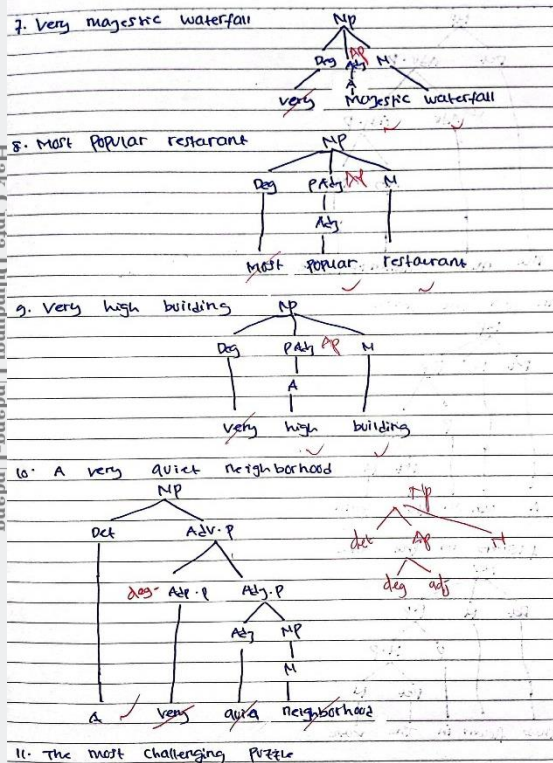 7. Very majestic waterfall
NP
Deg Adj AP N
A
very Majestic waterfall
8. Most Popular restarant
NP
Deg P Adj AP N
Adj
Most Popuar restaurant
9. Very high building
NP
Deg P Adj AP N
A
very high building
10. A very quiet neighborhood
NP
NP
Det Adv.P
det AP N
deg Adp.P Adj.P
deg adj
Adj NP
N
A very neighborhood
11. The most challenging Puzzle